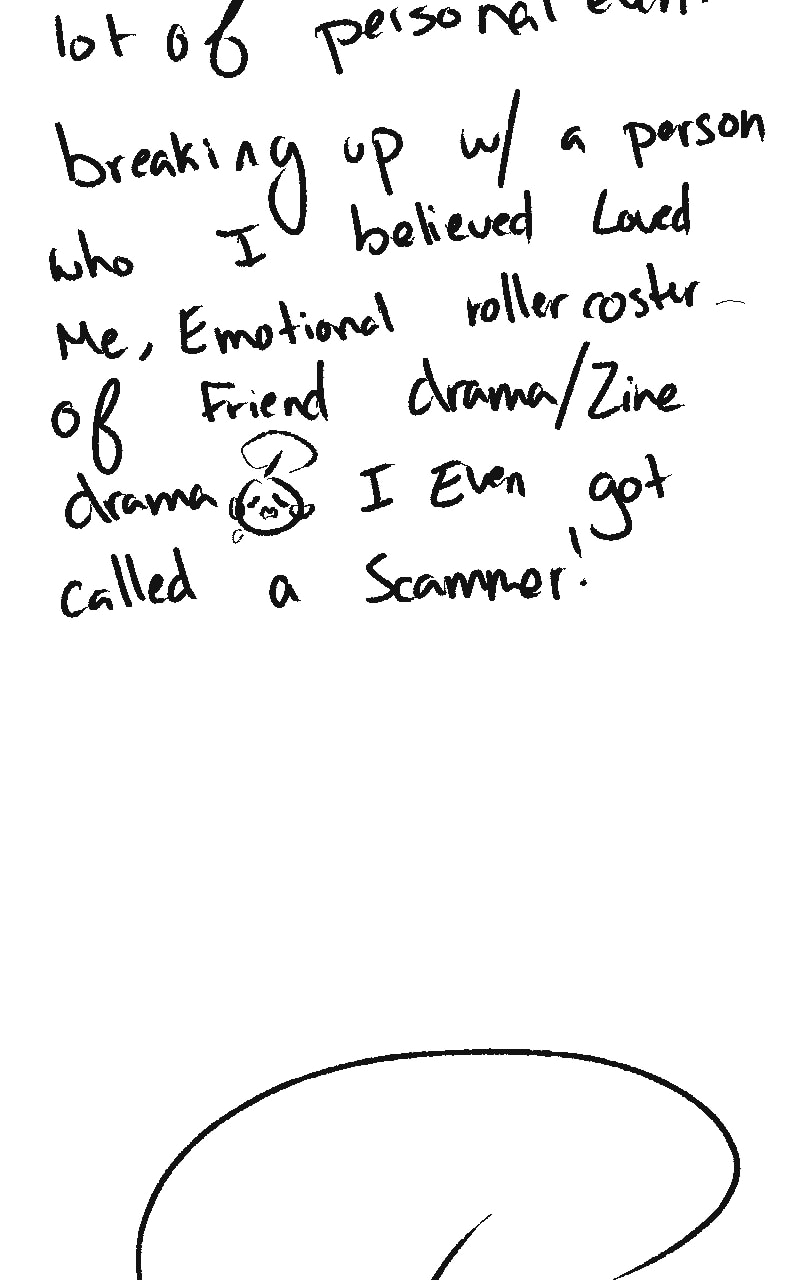 lot of personal
breaking up w/ a person
who I believed Loved
Me, Emotional roller coster
of Friend drama/Zine
drama I Even got
called a Scammer!